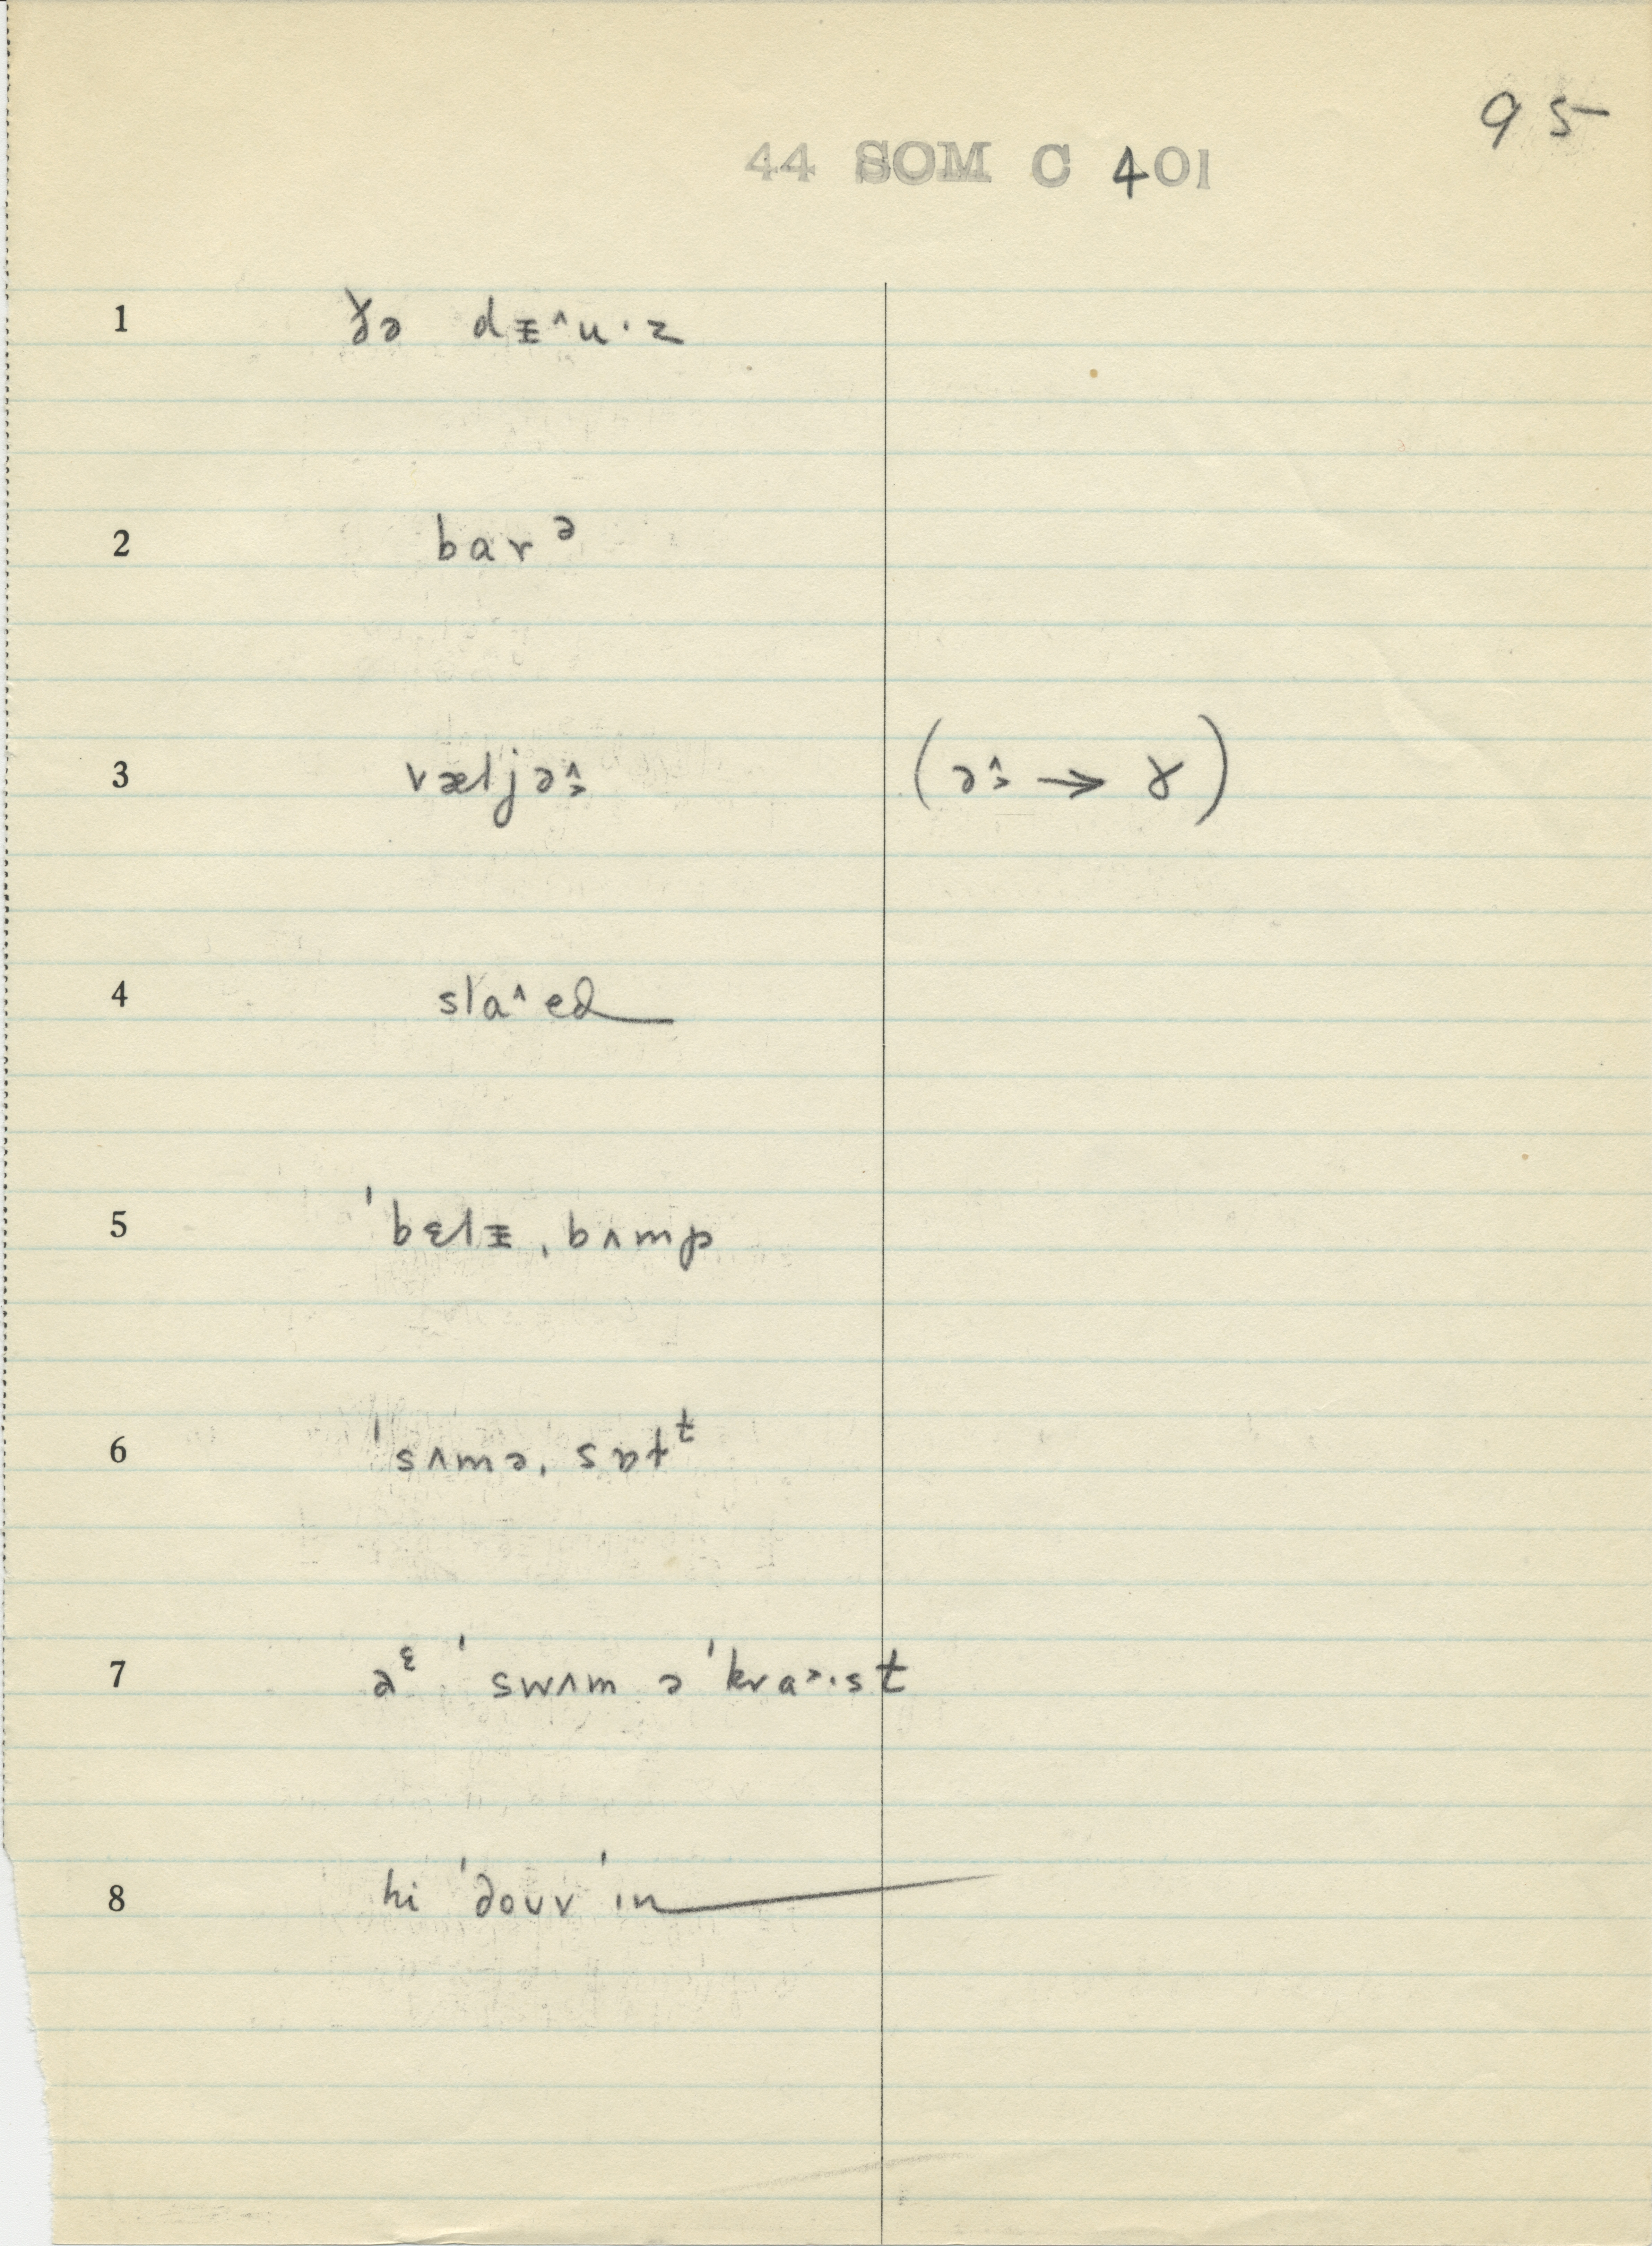 95
44 SOM C 401
1 ɣə dᵻ^u·z
2 barᵊ
3 væljə˄˃ (ə˄˃ → ɤ)
4 sla^ed
5 ˈbɛlᵻˌbʌmp
6 ˈsʌməˌsɒtᵗ
7 aᵋ ˈswʌm ə ˈkra˃·st
8 hi ˈdouv ˈin